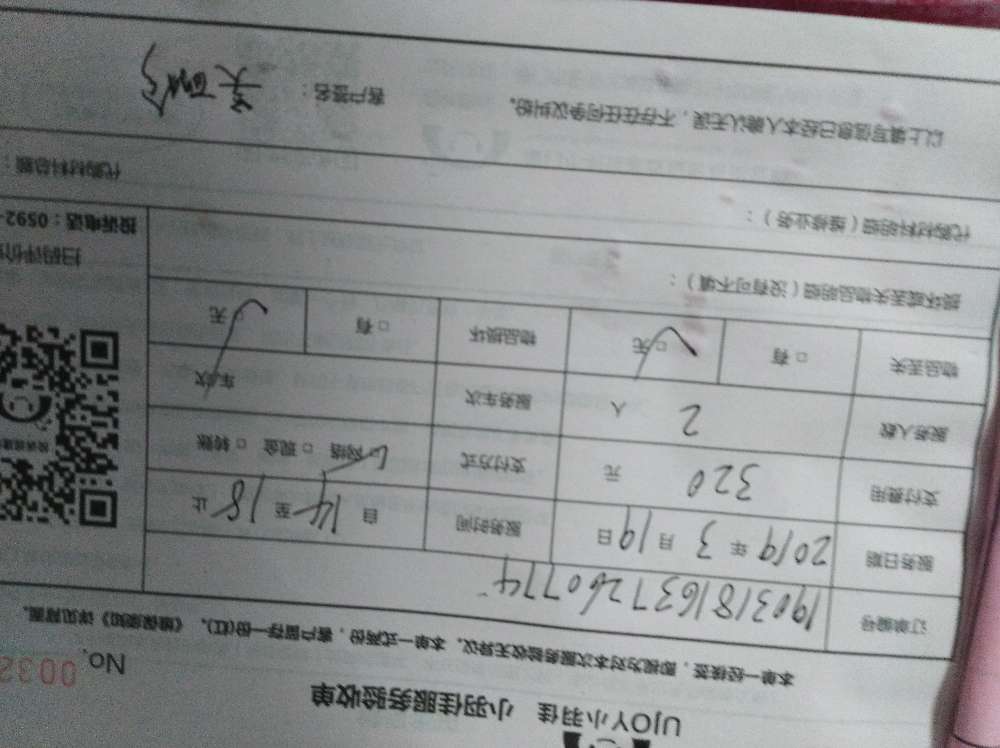 UJOY小羽佳 小羽佳服务验收单
No. 0032
本单一经核签，即视为对本次服务验收无异议。本单一式两份，客户留存一份(红)。《维保须知》详见背面。
订单编号 190318163726077 4
服务日期 2019 年 3 月 19 日 服务时间 自 14 至 18 止
支付费用 320 元 支付方式 □网络 □现金 □转账
服务人数 2 人 服务车次 车/次
物品丢失 □有 □无 物品损坏 □有 □无
损坏或丢失物品明细（没有可不填）：
扫码评价
投诉电话：0592-
代购材料明细（维修业务）：
代购材料总额：
以上填写信息已经本人确认无误，不存在任何争议纠纷。 客户签名：